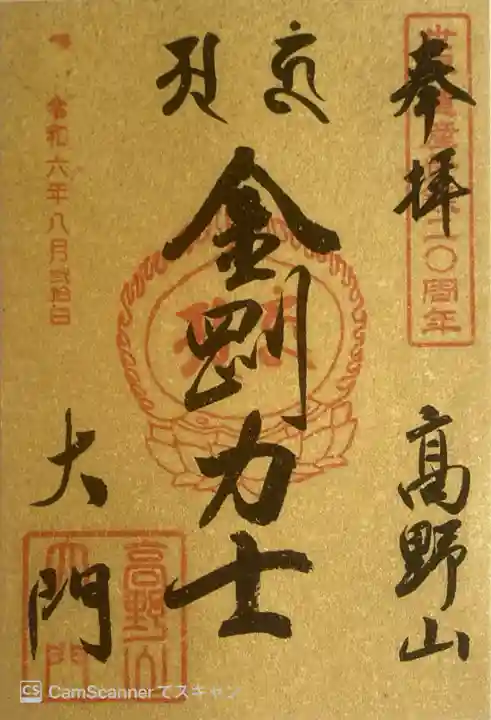 奉拝
高野山
金剛力士
大門
令和六年八月弐拾日
高野山
大門
CS CamScannerでスキャン